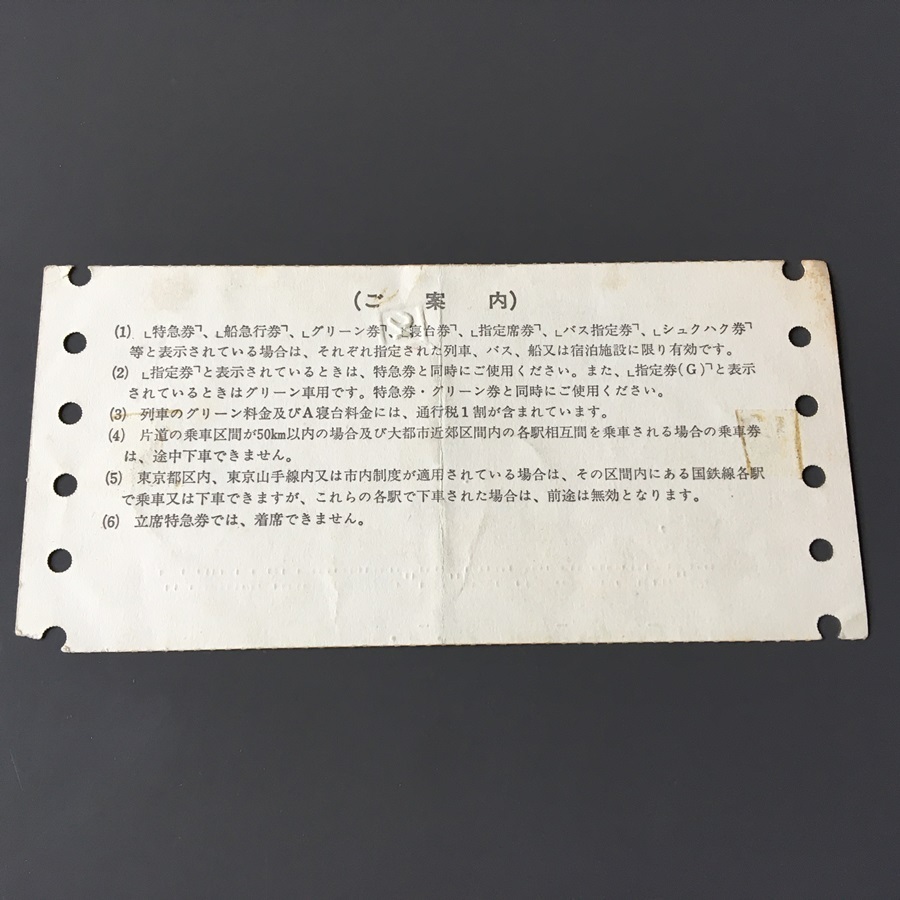 (ご案内)
(1) ｢特急券｣、｢船急行券｣、｢グリーン券｣、｢寝台券｣、｢指定席券｣、｢バス指定券｣、｢シュクハク券｣
等と表示されている場合は、それぞれ指定された列車、バス、船又は宿泊施設に限り有効です。
(2) ｢指定券｣と表示されているときは、特急券と同時にご使用ください。また、｢指定券(G)｣と表示
されているときはグリーン車用です。特急券・グリーン券と同時にご使用ください。
(3) 列車のグリーン料金及びA寝台料金には、通行税1割が含まれています。
(4) 片道の乗車区間が50km以内の場合及び大都市近郊区間内の各駅相互間を乗車される場合の乗車券
は、途中下車できません。
(5) 東京都区内、東京山手線内又は市内制度が適用されている場合は、その区間内にある国鉄線各駅
で乗車又は下車できますが、これらの各駅で下車された場合は、前途は無効となります。
(6) 立席特急券では、着席できません。